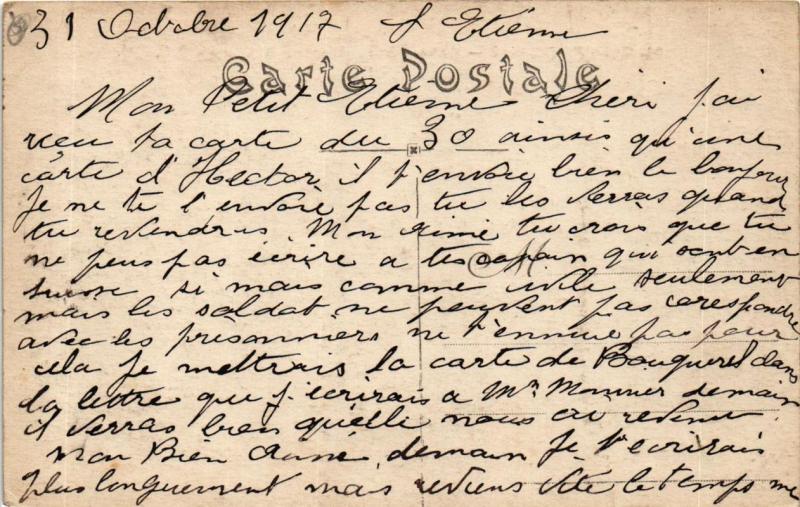 31 Octobre 1917 St Etienne
Carte Postale
Mon Petit Etienne Chéri j'ai
reçu ta carte du 30 ainsis qu'une
carte d'Hector, il t'envoie bien le bonjour
Je ne te l'envoie pas tu les verras quand
tu reviendras. Mon aimé tu crois que tu
ne peus pas écrire a tes copain qui sont en
suisse si mais comme civile seulement
mais les soldat ne peuvent pas corespondre
avec les prisonniers ne t'ennuie pas pour
cela je mettrais la carte de Bouquerel dans
la lettre que j'écrirais a Mr Monnier demain
il verras bien qu'elle nous ai revenue.
Mon Bien Aimé, demain Je t'ecrirais
plus longuement mais reviens vite le temps me